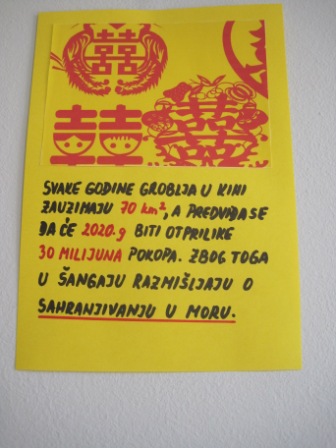 囍
囍
囍
SVAKE GODINE GROBLJA U KINI
ZAUZIMAJU 70 km², A PREDVIĐA SE
DA ĆE 2020.g BITI OTPRILIKE
30 MILIJUNA POKOPA. ZBOG TOGA
U ŠANGAJU RAZMIŠLJAJU O
SAHRANJIVANJU U MORU.